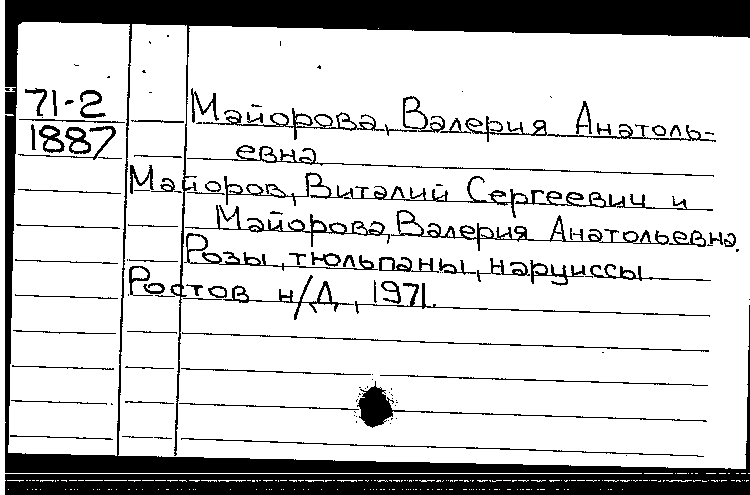 71-2
1887
Майорова, Валерия Анатоль-
евна.
Майоров, Виталий Сергеевич и
Майорова, Валерия Анатольевна.
Розы, тюльпаны, нарциссы.
Ростов н/Д, 1971.